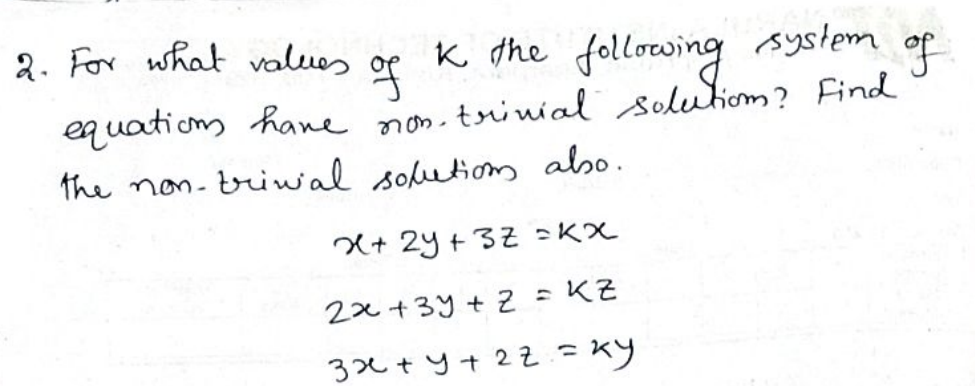 2. For what values of K the following system of
equations have non-trivial solutions? Find
the non-trivial solutions also.
x + 2y + 3z = Kx
2x + 3y + z = Kz
3x + y + 2z = Ky